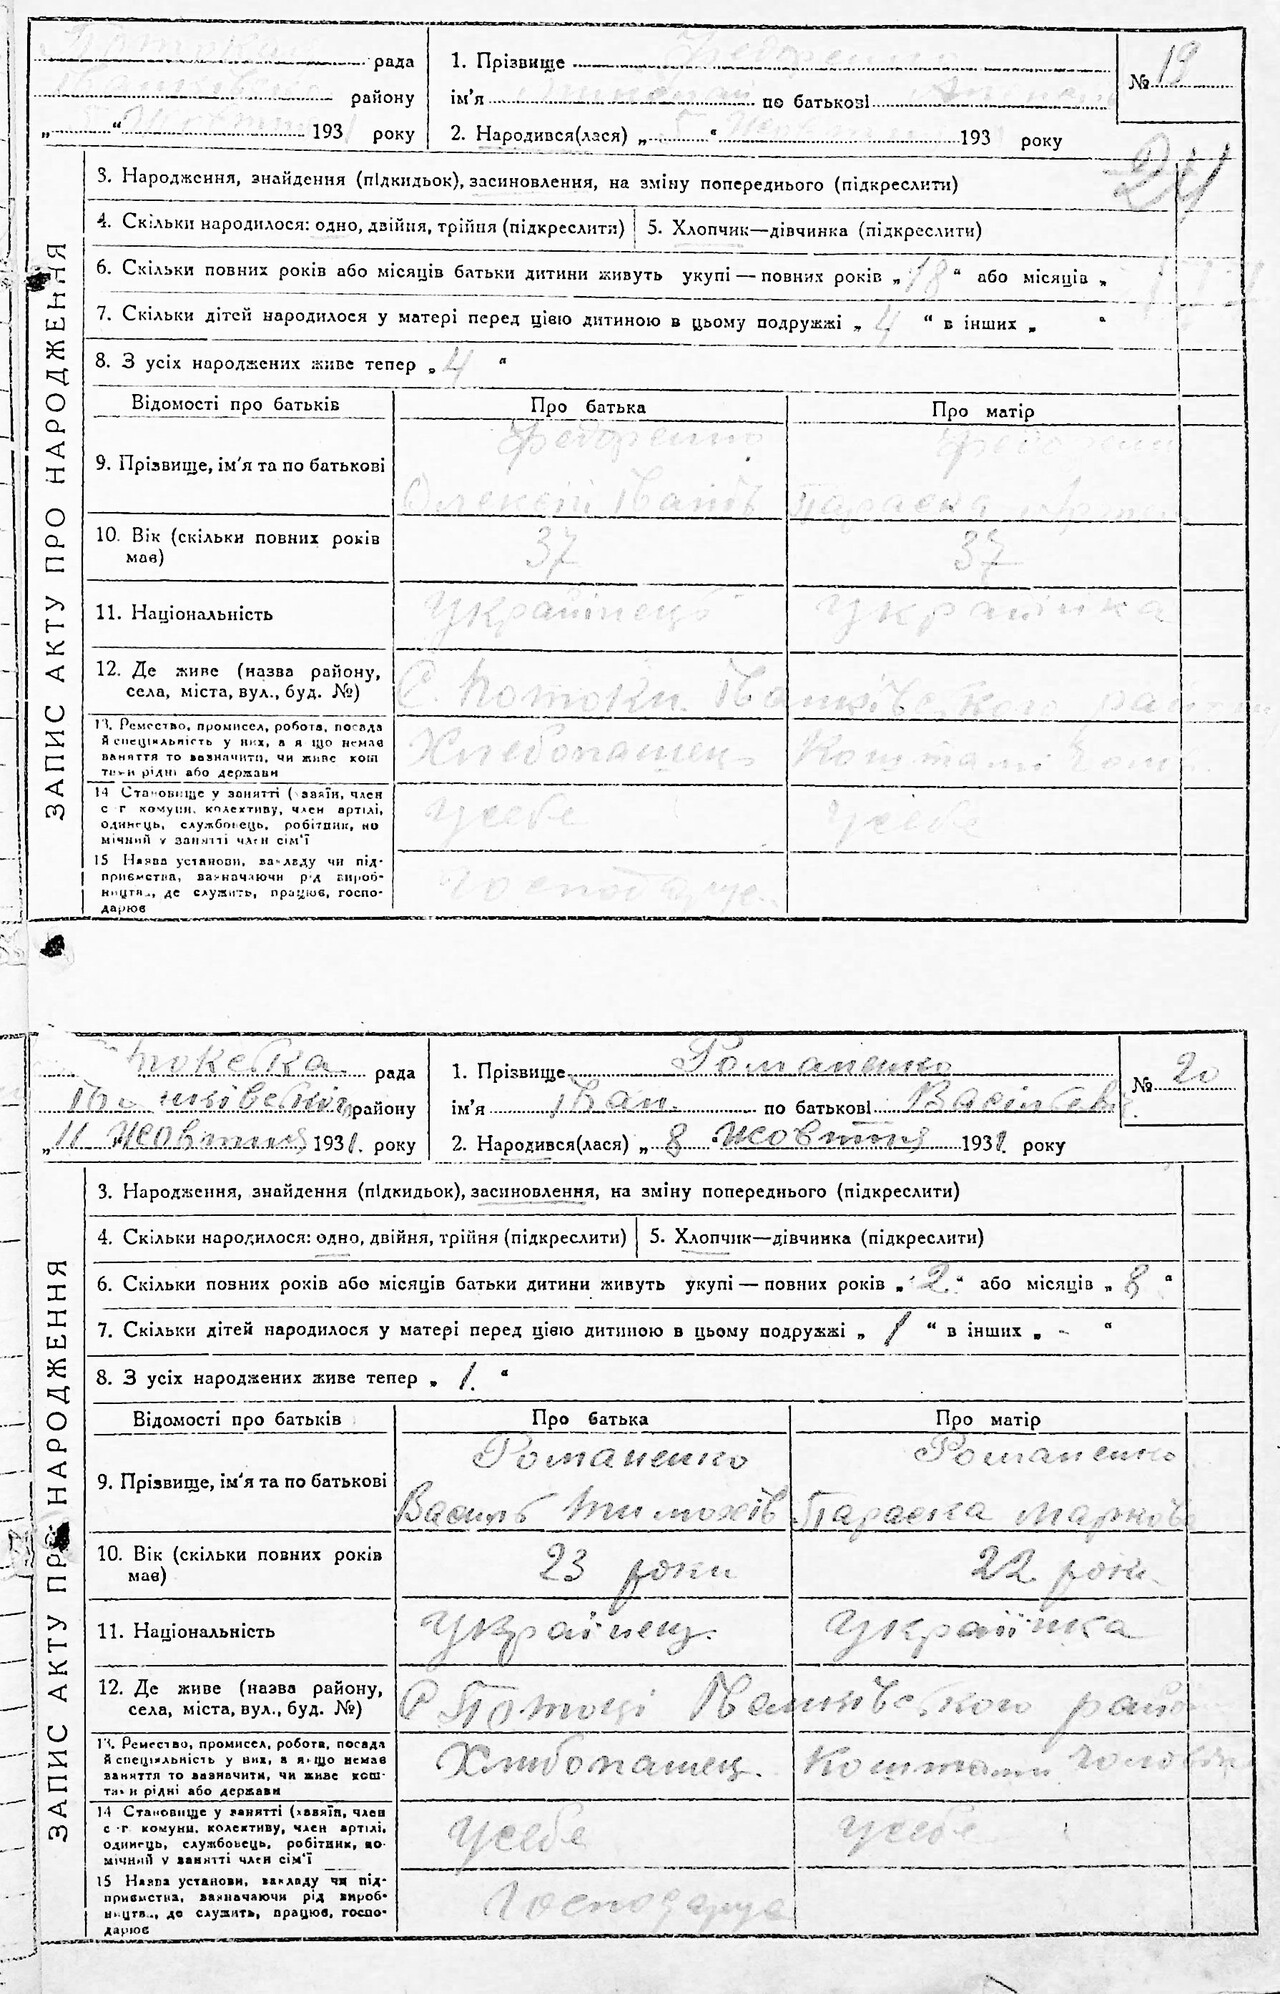 рада
району
193 року
1. Прізвище
ім'я по батькові
2. Народився(лася) „ “ 193 року
№ 19
24
ЗАПИС АКТУ ПРО НАРОДЖЕННЯ
3. Народження, знайдення (підкидьок), засиновлення, на зміну попереднього (підкреслити)
4. Скільки народилося: одно, двійня, трійня (підкреслити) 5. Хлопчик—дівчинка (підкреслити)
6. Скільки повних років або місяців батьки дитини живуть укупі — повних років „ 18 “ або місяців „
7. Скільки дітей народилося у матері перед цією дитиною в цьому подружжі „ 4 “ в інших „ “
8. З усіх народжених живе тепер „ 4 “
Відомості про батьків Про батька Про матір
9. Прізвище, ім'я та по батькові
Федоренко
Олексій Іванів Параска
10. Вік (скільки повних років має) 37 37
11. Національність Українець Українка
12. Де живе (назва району, села, міста, вул., буд. №) С. Потоки
13. Ремество, промисел, робота, посада й спеціяльність у них, а якщо немає заняття то зазначити, чи живе коштами рідні або держави Хлебопашец Коштами
14 Становище у занятті (хазяїн, член с-г комуни, колективу, член артілі, одинець, службовець, робітник, помічний у занятті член сім'ї Усебе Усебе
15 Назва установи, закладу чи підприємства, зазначаючи рід виробництва, де служить, працює, господарює Господарує
рада
району
„ 11 Жовтня 1931. року
1. Прізвище Романенко
ім'я Іван по батькові
2. Народився(лася) „ 8 Жовтня 1931. року
№ 20
ЗАПИС АКТУ ПРО НАРОДЖЕННЯ
3. Народження, знайдення (підкидьок), засиновлення, на зміну попереднього (підкреслити)
4. Скільки народилося: одно, двійня, трійня (підкреслити) 5. Хлопчик—дівчинка (підкреслити)
6. Скільки повних років або місяців батьки дитини живуть укупі — повних років „ 2 “ або місяців „ 8 “
7. Скільки дітей народилося у матері перед цією дитиною в цьому подружжі „ 1 “ в інших „ - “
8. З усіх народжених живе тепер „ 1. “
Відомості про батьків Про батька Про матір
9. Прізвище, ім'я та по батькові
Романенко Романенко
Василь Тимохів Параска Марків
10. Вік (скільки повних років має) 23 роки 22 роки
11. Національність Українец. Українка
12. Де живе (назва району, села, міста, вул., буд. №) С Потоці
13. Ремество, промисел, робота, посада й спеціяльність у них, а якщо немає заняття то зазначити, чи живе коштами рідні або держави Хлибопашец. Коштами чоловіка
14 Становище у занятті (хазяїн, член с-г комуни, колективу, член артілі, одинець, службовець, робітник, помічний у занятті член сім'ї Усебе Усебе
15 Назва установи, закладу чи підприємства, зазначаючи рід виробництва, де служить, працює, господарює Господарує